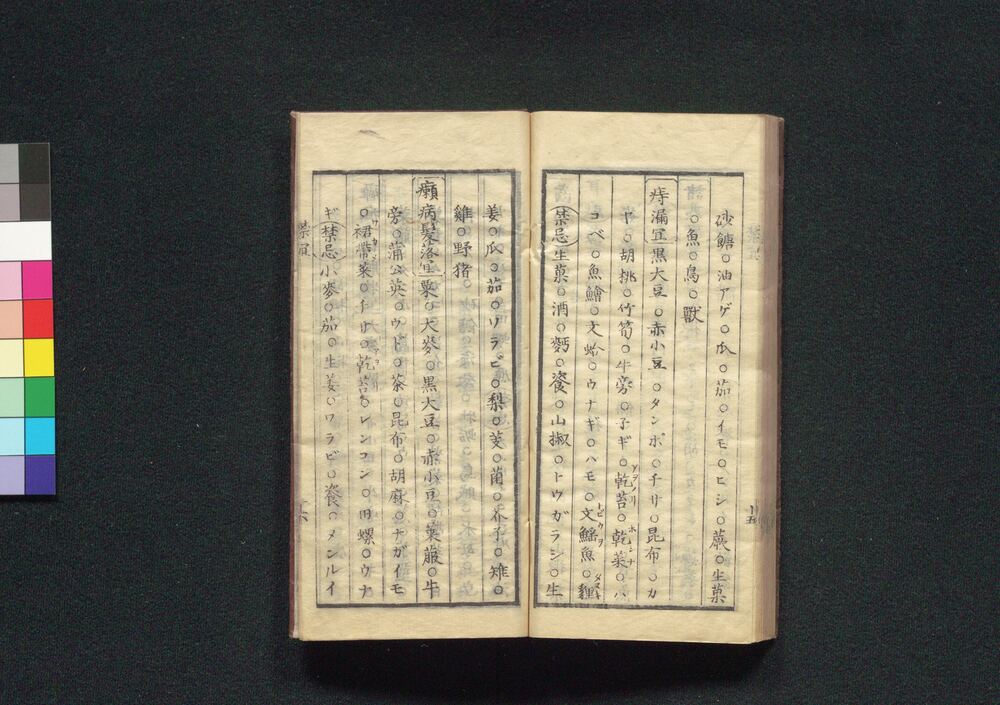 砂餹○油アゲ○瓜○茄○イモ○ヒシ○蕨○生菓
○魚○鳥○獸
痔漏宜黒大豆○赤小豆○タンポ○チサ○昆布○カ
ヤ○胡桃○竹筍○牛旁○子ギ○乾苔○乾菜○ハ
コベ○魚鱠○文蛤○ウナギ○ハモ○文鰩魚○貍
禁忌生菓○酒○麪○餈○山椒○トウガラシ○生
十五
姜○瓜○茄○ワラビ○梨○芰○菌○芥子○雉○
雞○野猪
癩病髮落宜粟○大麥○黒大豆○赤小豆○葉菔○牛
旁○蒲公英○ウド○茶○昆布○胡麻○ナガイモ
○裙帶菜○チサ○乾苔○レンコン○田螺○ウナ
ギ禁忌小麥○茄○生姜○ワラビ○餈○メンルイ
禁宜